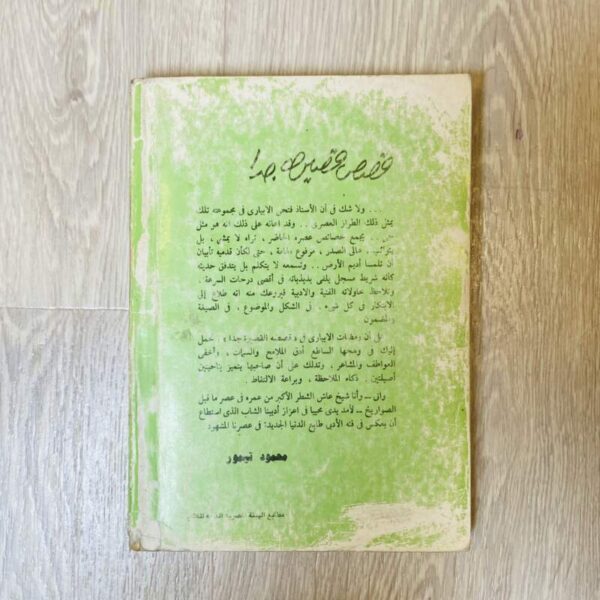 قصص قصيرة جدا !
. . . ولا شك فى أن الأستاذ فتحى الابيارى فى مجموعته تلك
يمثل ذلك الطراز العصرى . . وقد اعانه على ذلك انه هو مثل
حى . . يجمع خصائص عصره الحاضر ، تراه لا يمشى ، بل
يتواثب . . عالى الصدر ، مرفوع الهامة ، حتى لكأن قدميه تأبيان
ان تلمسا أديم الأرض . . وتسمعه لا يتكلم بل يتدفق حديثه
كأنه شريط مسجل يلقى بذبذباته فى أقصى درجات السرعة .
وتلاحظ محاولاته الفنية والادبية فيروعك منه انه طلاع إلى
الابتكار فى كل شىء . فى الشكل والموضوع ، فى الصيغة
والمضمون
بل أن ومضات الابيارى فى « قصصه القصيرة جدا » تحمل
إليك فى وهجها الساطع أدق الملامح والسمات ، وأخفى
العواطف والمشاعر ، وتدلك على أن صاحبها يتميز بناحيتين
أصيلتين . ذكاء الملاحظة ، وبراعة الالتقاط .
وانى ـــ وأنا شيخ عاش الشطر الأكبر من عمره فى عصر ما قبل
الصواريخ ـــ لأمد يدى محييا فى اعزاز أديبنا الشاب الذى استطاع
أن يعكس فى فنه الأدبى طابع الدنيا الجديدة فى عصرنا المشهود
محمود تيمور
مطابع الهيئة المصرية العامة للكتاب